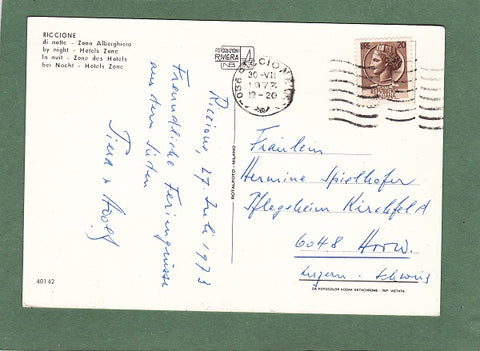 RICCIONE
di notte - Zona Alberghiera
by night - Hotels Zone
la nuit - Zone des Hotels
bei Nacht - Hotels Zone
FOTOEDIZIONI
RIVIERA
RICCIONE
30-VII
1973
19-20
20
Riccione, 27. Juli 1973
Freundliche Feriengrüsse
aus dem Süden
ROTALFOTO - MILANO
Fräulein
Hermine Spielhofer
Pflegeheim Kirchfeld
6048 Horw.
Luzern. Schweiz
40142